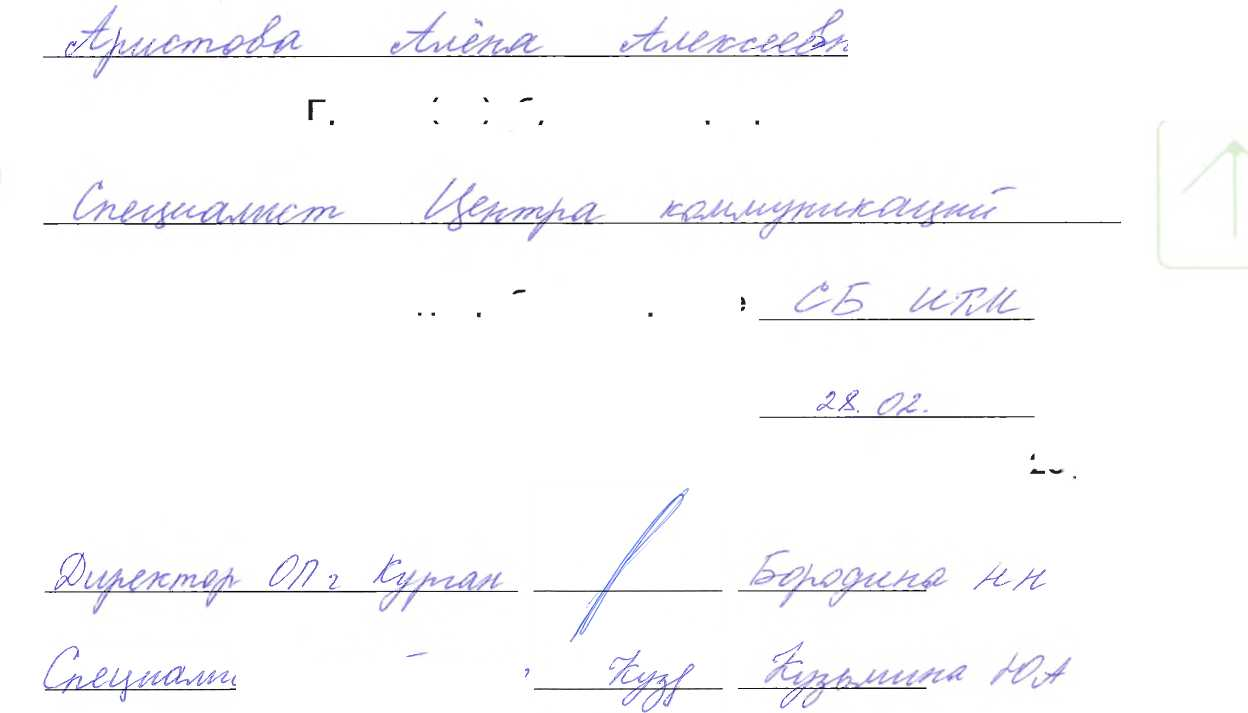 Аристова Алёна Алексеевн
Специалист Центра коммуникаций
СБ ИТМ
28.02.
Директор ОП г Курган Бородина НН
Специали Кузьмина ЮА